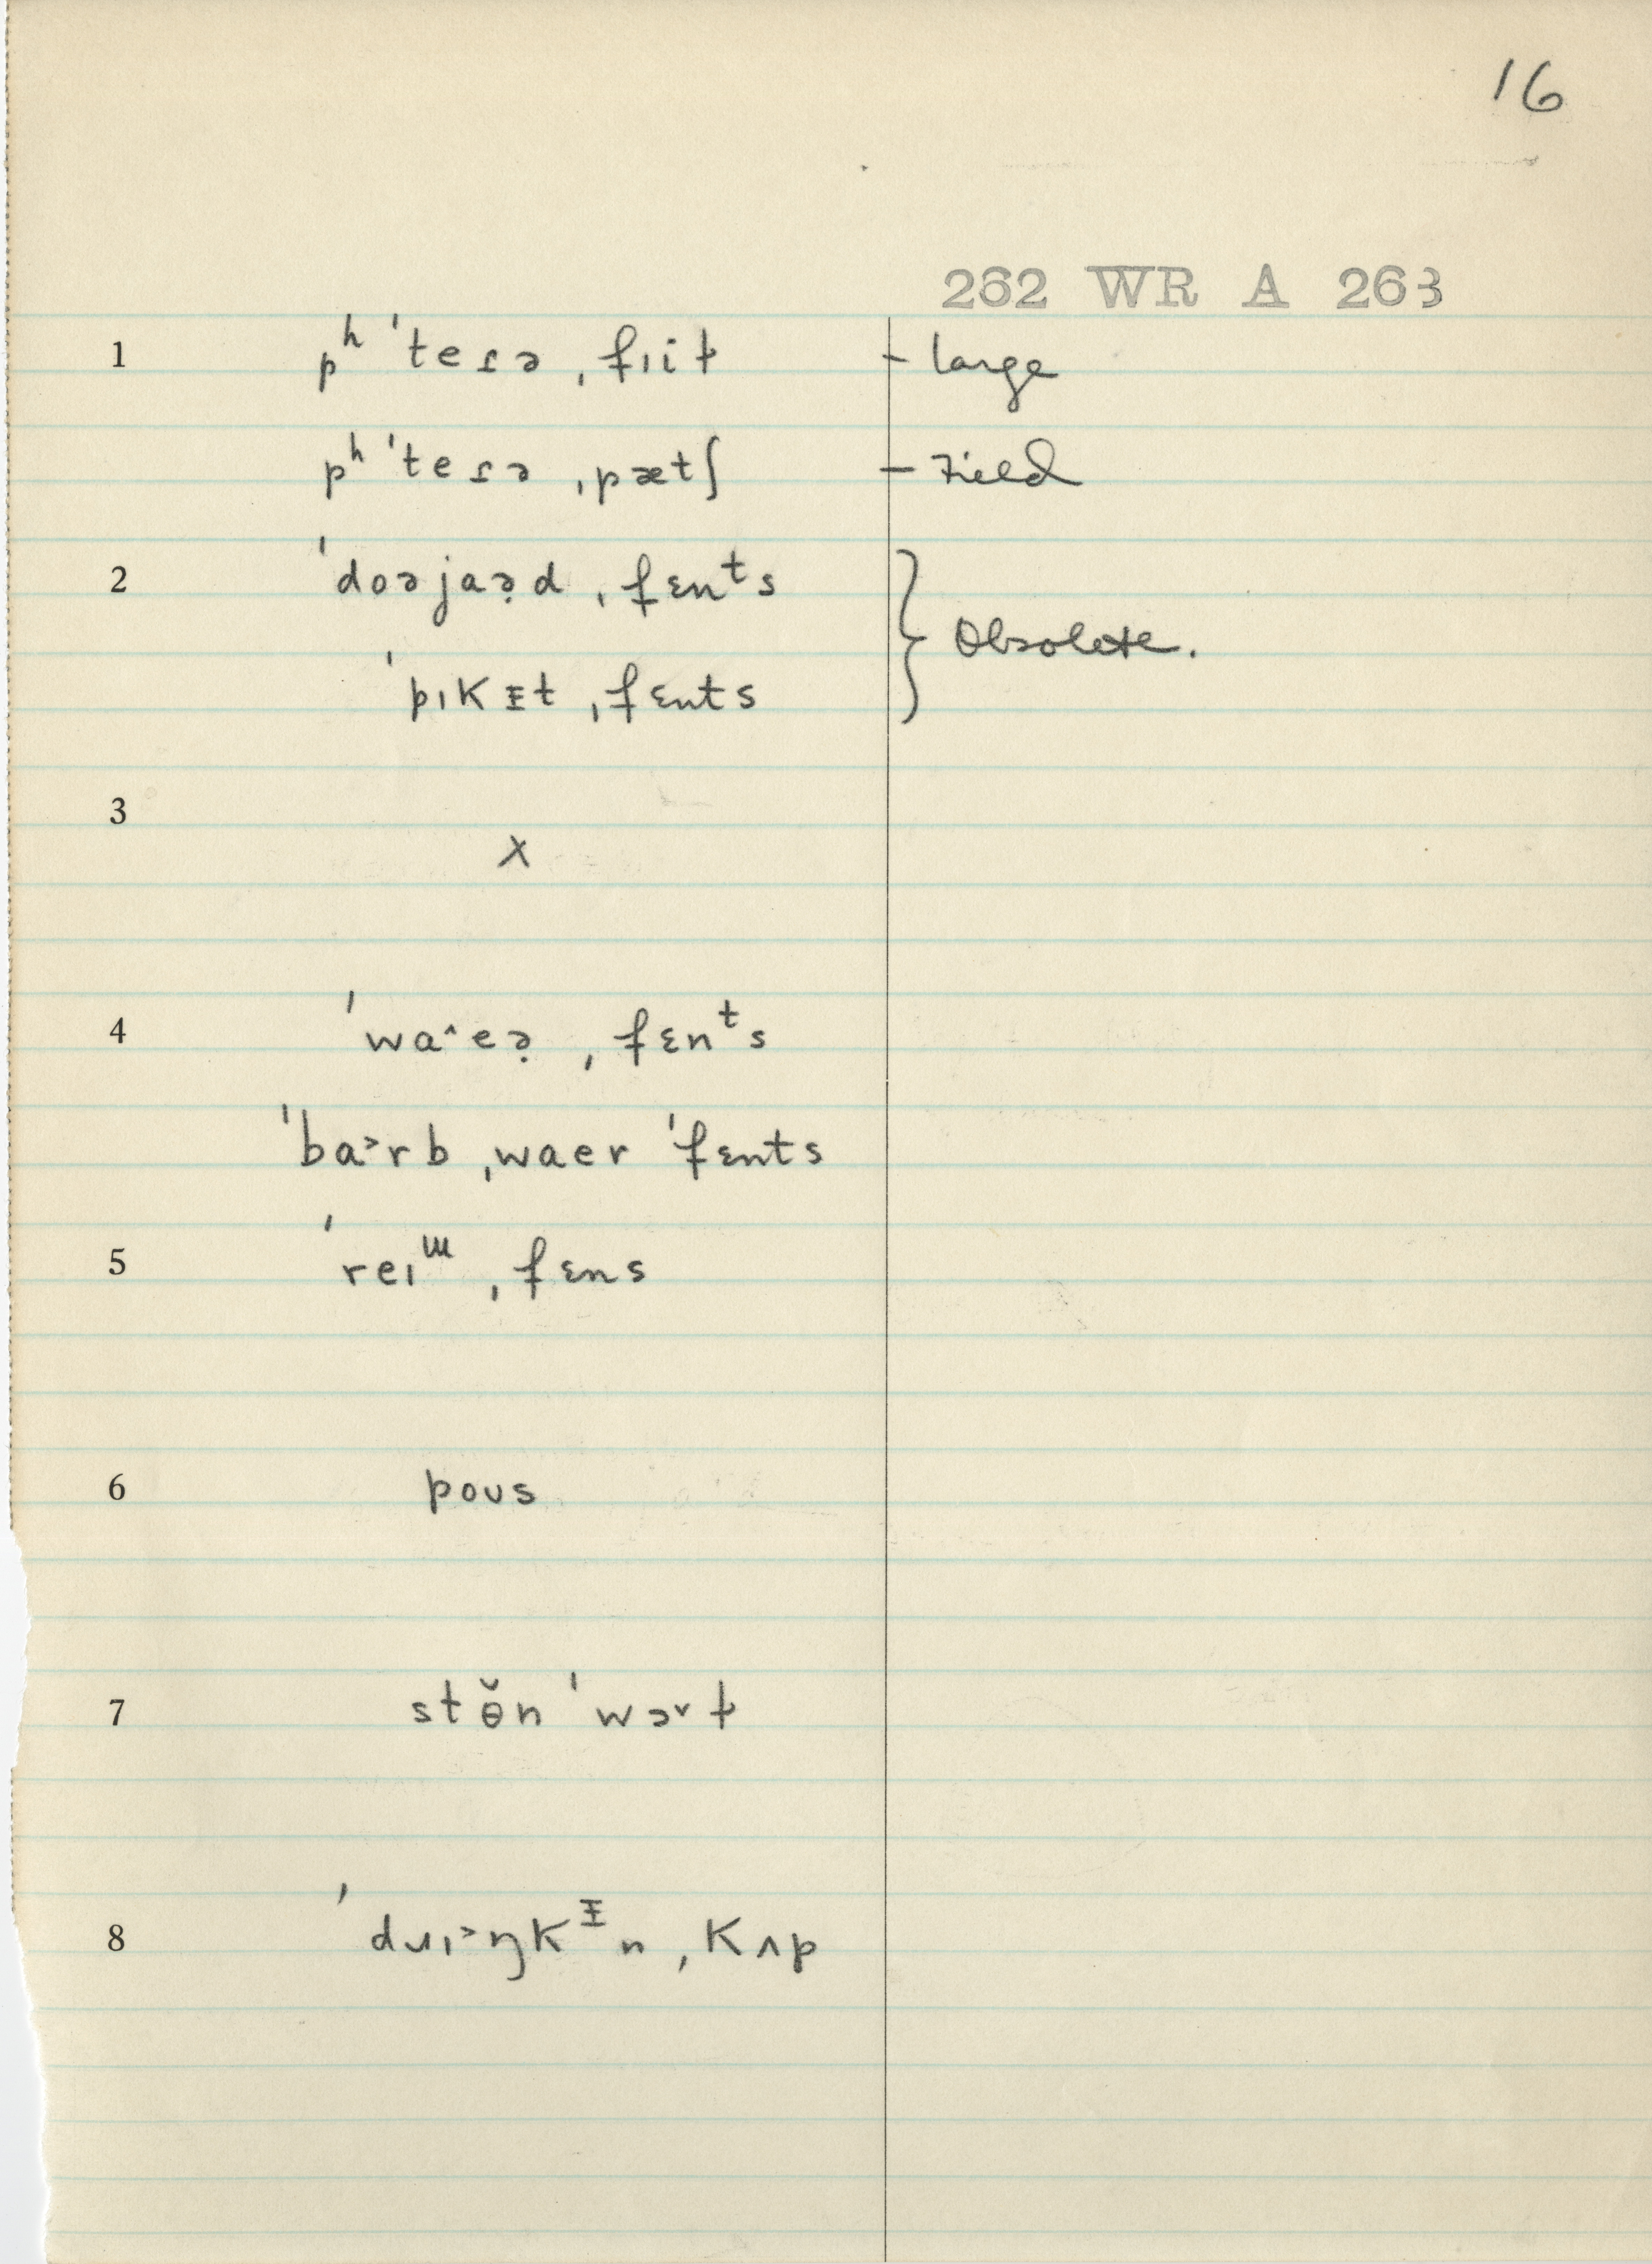 16
262 WR A 263
1 pʰ ˈteɾə ˌfɪit̬ – large
pʰ ˈteɾə ˌpætʃ – Field
2 ˈdoəjaə̣d ˌfɛnᵗs } Obsolete.
ˈpɪkᵻt ˌfɛnts
3 X
4 ˈwa˄eə̣ ˌfɛnᵗs
ˈba˃rb ˌwaer ˈfɛnts
5 ˈreɪɯ ˌfɛns
6 poʊs
7 stɵ̆n ˈwɔ˅ɫ
8 ˈdɹɪ˃ŋkᵻn ˌkʌp